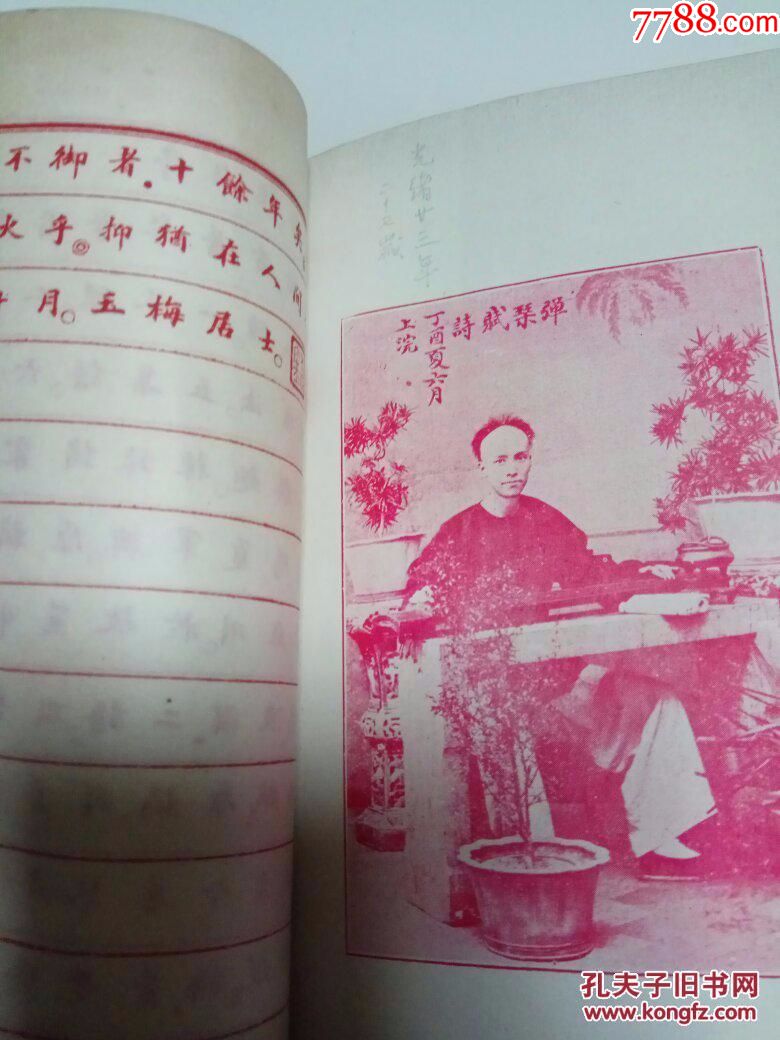 7788.com
不御者。十餘年矣
火乎。抑猶在人間
十月。五梅居士。
光緒廿三年
二十七歲
彈琹賦詩
丁酉夏六月
上浣。
孔夫子旧书网
www.kongfz.com